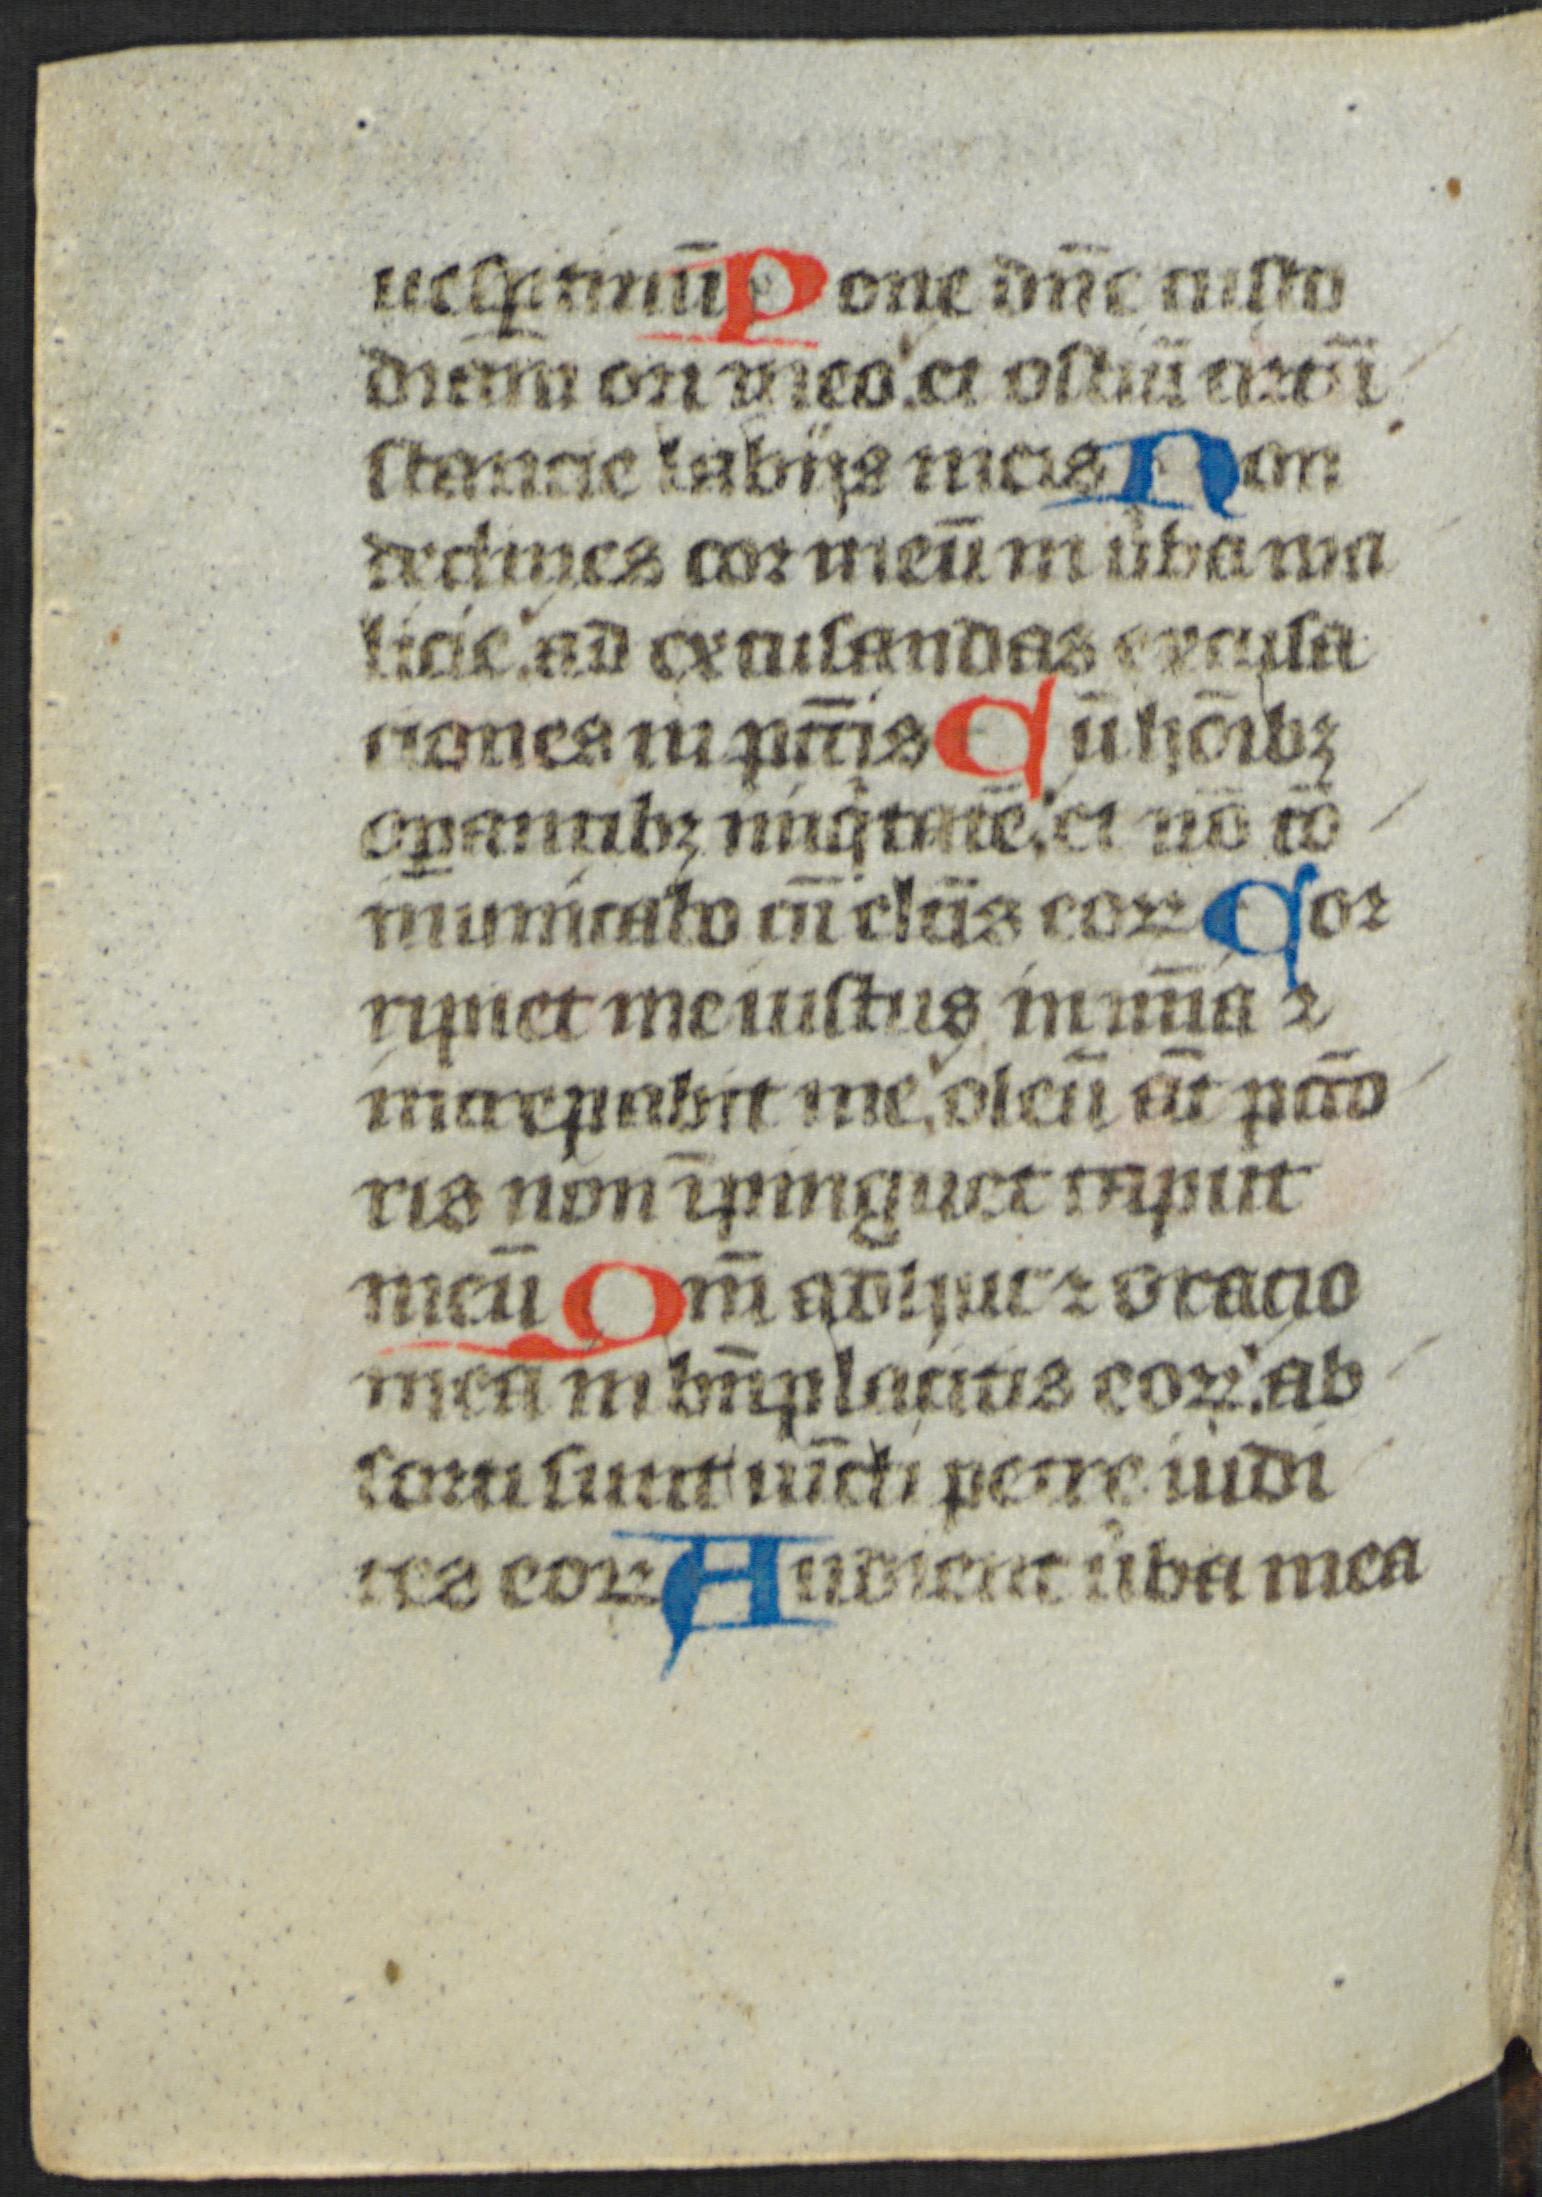 uesꝑtinū Pone dn̄e custo
diam̄ ori meo. et ostiū circū
stancie labijs meis Non
declines cor meū in ůba ma
licie. ad excusandas excusa
ciones in pcc̄is Cū hoīb⁊
oꝑantib⁊ iniqͥtatē. et nō cō
municabo cū elcīs eoꝝ Cor
ripiet me iustus in mīa ⁊
increpabit me. oleū aūt pccō
ris non īpinguet caput
meū Qm̄ adhuc ⁊ oracio
mea in bn̄placitis eoꝝ. ab
sorti sunt iūcti petre iudi
ces eoꝝ Audient ůba mea